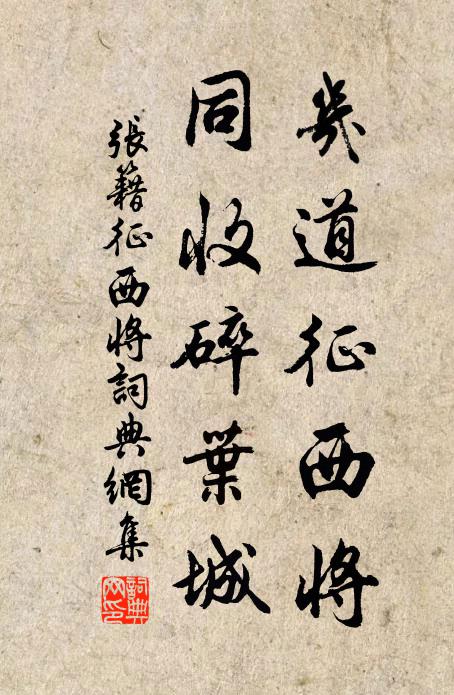 幾道征西將
同收碎葉城
張籍征西將詞典網集
詞典
网印